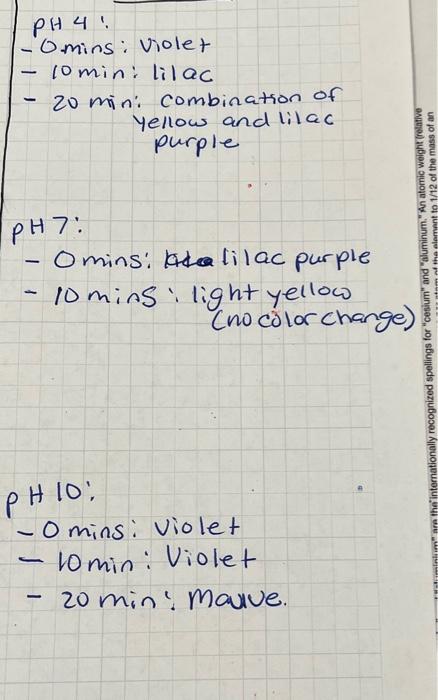 pH 4:
- 0mins: Violet
- 10min: lilac
- 20 min: combination of
yellow and lilac
purple
pH 7:
- 0mins: lilac purple
- 10mins: light yellow
(no color change)
pH 10:
- 0mins: Violet
- 10min: Violet
- 20min: Mauve.
are the internationally recognized spellings for "cesium" and "aluminum." An atomic weight (relative
to 1/12 of the mass of an